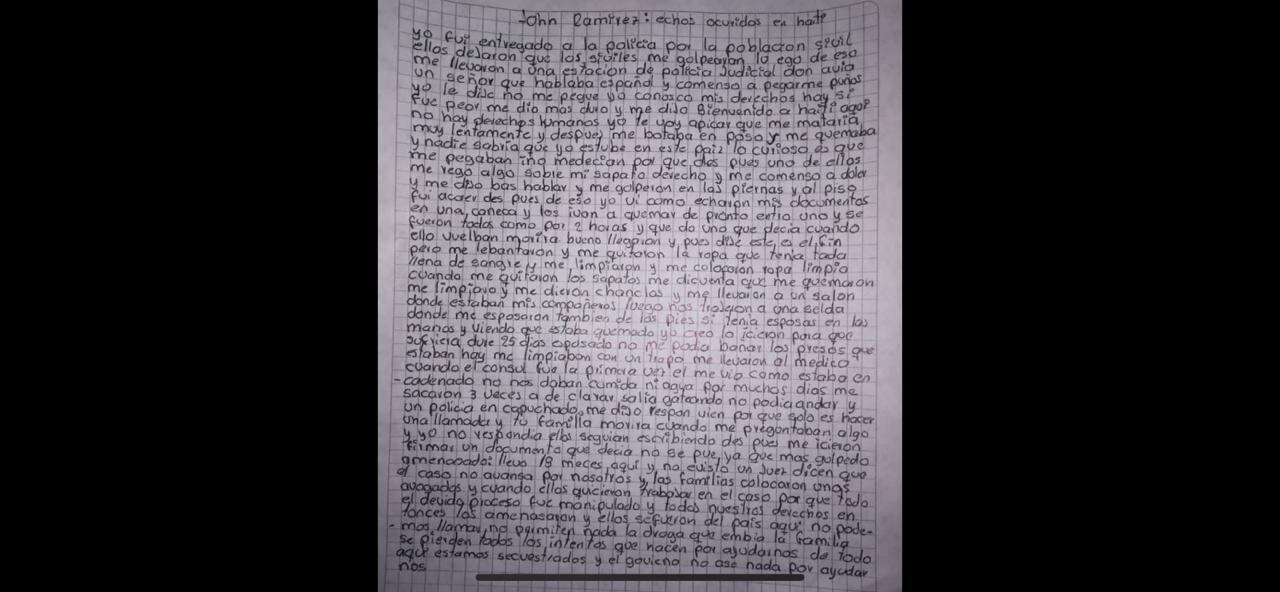 John Ramirez: echos ocuridos en haiti
yo fui entregado a la policia por la poblacion sivil
ellos dejaron que los siviles me golpearon luego de eso
me llevaron a una estacion de policia Judicial don avia
un señor que hablaba español y comenso a pegarme puños
yo le dije no me pegue yo conosco mis derechos hay si
fue peor me dio mas duro y me dijo Bienvenido a haiti aqui
no hay derechos humanos yo te voy apicar que me mataria
muy lentamente y despues me botaba en poso y me quemaba
y nadie sabria que yo estube en este paiz lo curioso es que
me pegaban y me desian por que des pues uno de ellos
me rego algo sobre mi sapato derecho y me comenso a doler
y me dijo bas hablar y me golperon en las piernas y al piso
fui acaer des pues de eso yo vi como echaron mis documentos
en una caneca y los ivan a quemar de pronto entro uno y se
fueron todos como por 2 horas y que do uno que decia cuando
ello vuelban morira bueno llegaron y pues dije este es el fin
pero me lebantaron y me quitaron la ropa que tenia toda
llena de sangre y me limpiaron y me colocaron ropa limpia
cuando me quitaron los sapatos me dicuenta que me quemaron
me limpiaro y me dieron chanclas y me llevaron a un salon
donde estaban mis compañeros luego nos trajeron a una selda
donde me esposaron tambien de los pies si tenia esposas en las
manos y viendo que estaba quemado yo creo lo icieron para que
sufriera dure 25 dias esposado no me podia bañar los presos que
estaban hay me limpiaban con un trapo me llevaron al medico
cuando el consul fue la primera ves el me vio como estaba en
-cadenado no nos daban cumida ni agua por muchos dias me
sacaron 3 veces a de clarar salia gateando no podia andar y
un policia en capuchado me dijo respon vien por que solo es hacer
una llamada y tu familla morira cuando me pregontaban algo
y yo no respondia ellos seguian escribiendo des pues me icieron
firmar un documento que decia no se pue, ya que mas golpedo
amenasado: llevo 18 meces aqui y no existo un Juez dicen que
el caso no avansa por nosotros y las familias colocaron unos
avogados y cuando ellos quicieron trabajar en el caso por que todo
el devido proceso fue manipulado y todos nuestros derechos en
tonces los amenasaron y ellos se fueron del pais aqui no pode-
-mos llamar, no permiten nada la droga que embia la familia
se pierden todos los intentos que hacen por ayudarnos de todo
aqui estamos secuestrados y el govierno no ase nada por ayudar
nos